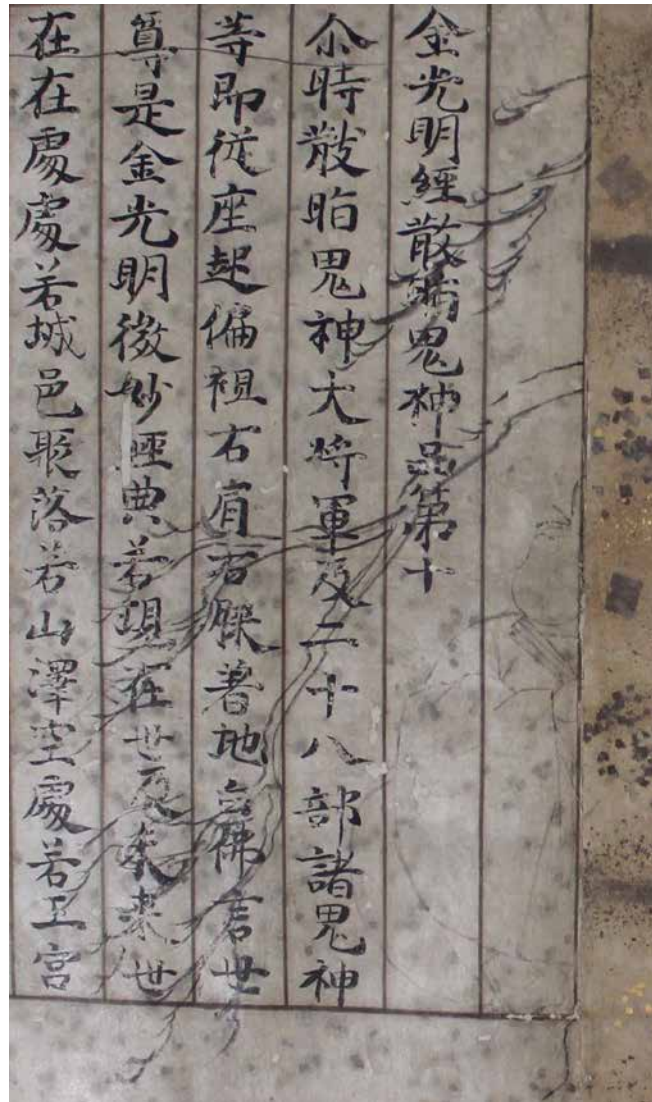 金光明經散脂鬼神品第十
尒時散脂鬼神大将軍及二十八部諸鬼神
等即従座起偏袒右肩右膝著地白佛言世
尊是金光明微妙經典若現在世及未来世
在在處處若城邑聚落若山澤空處若王宮